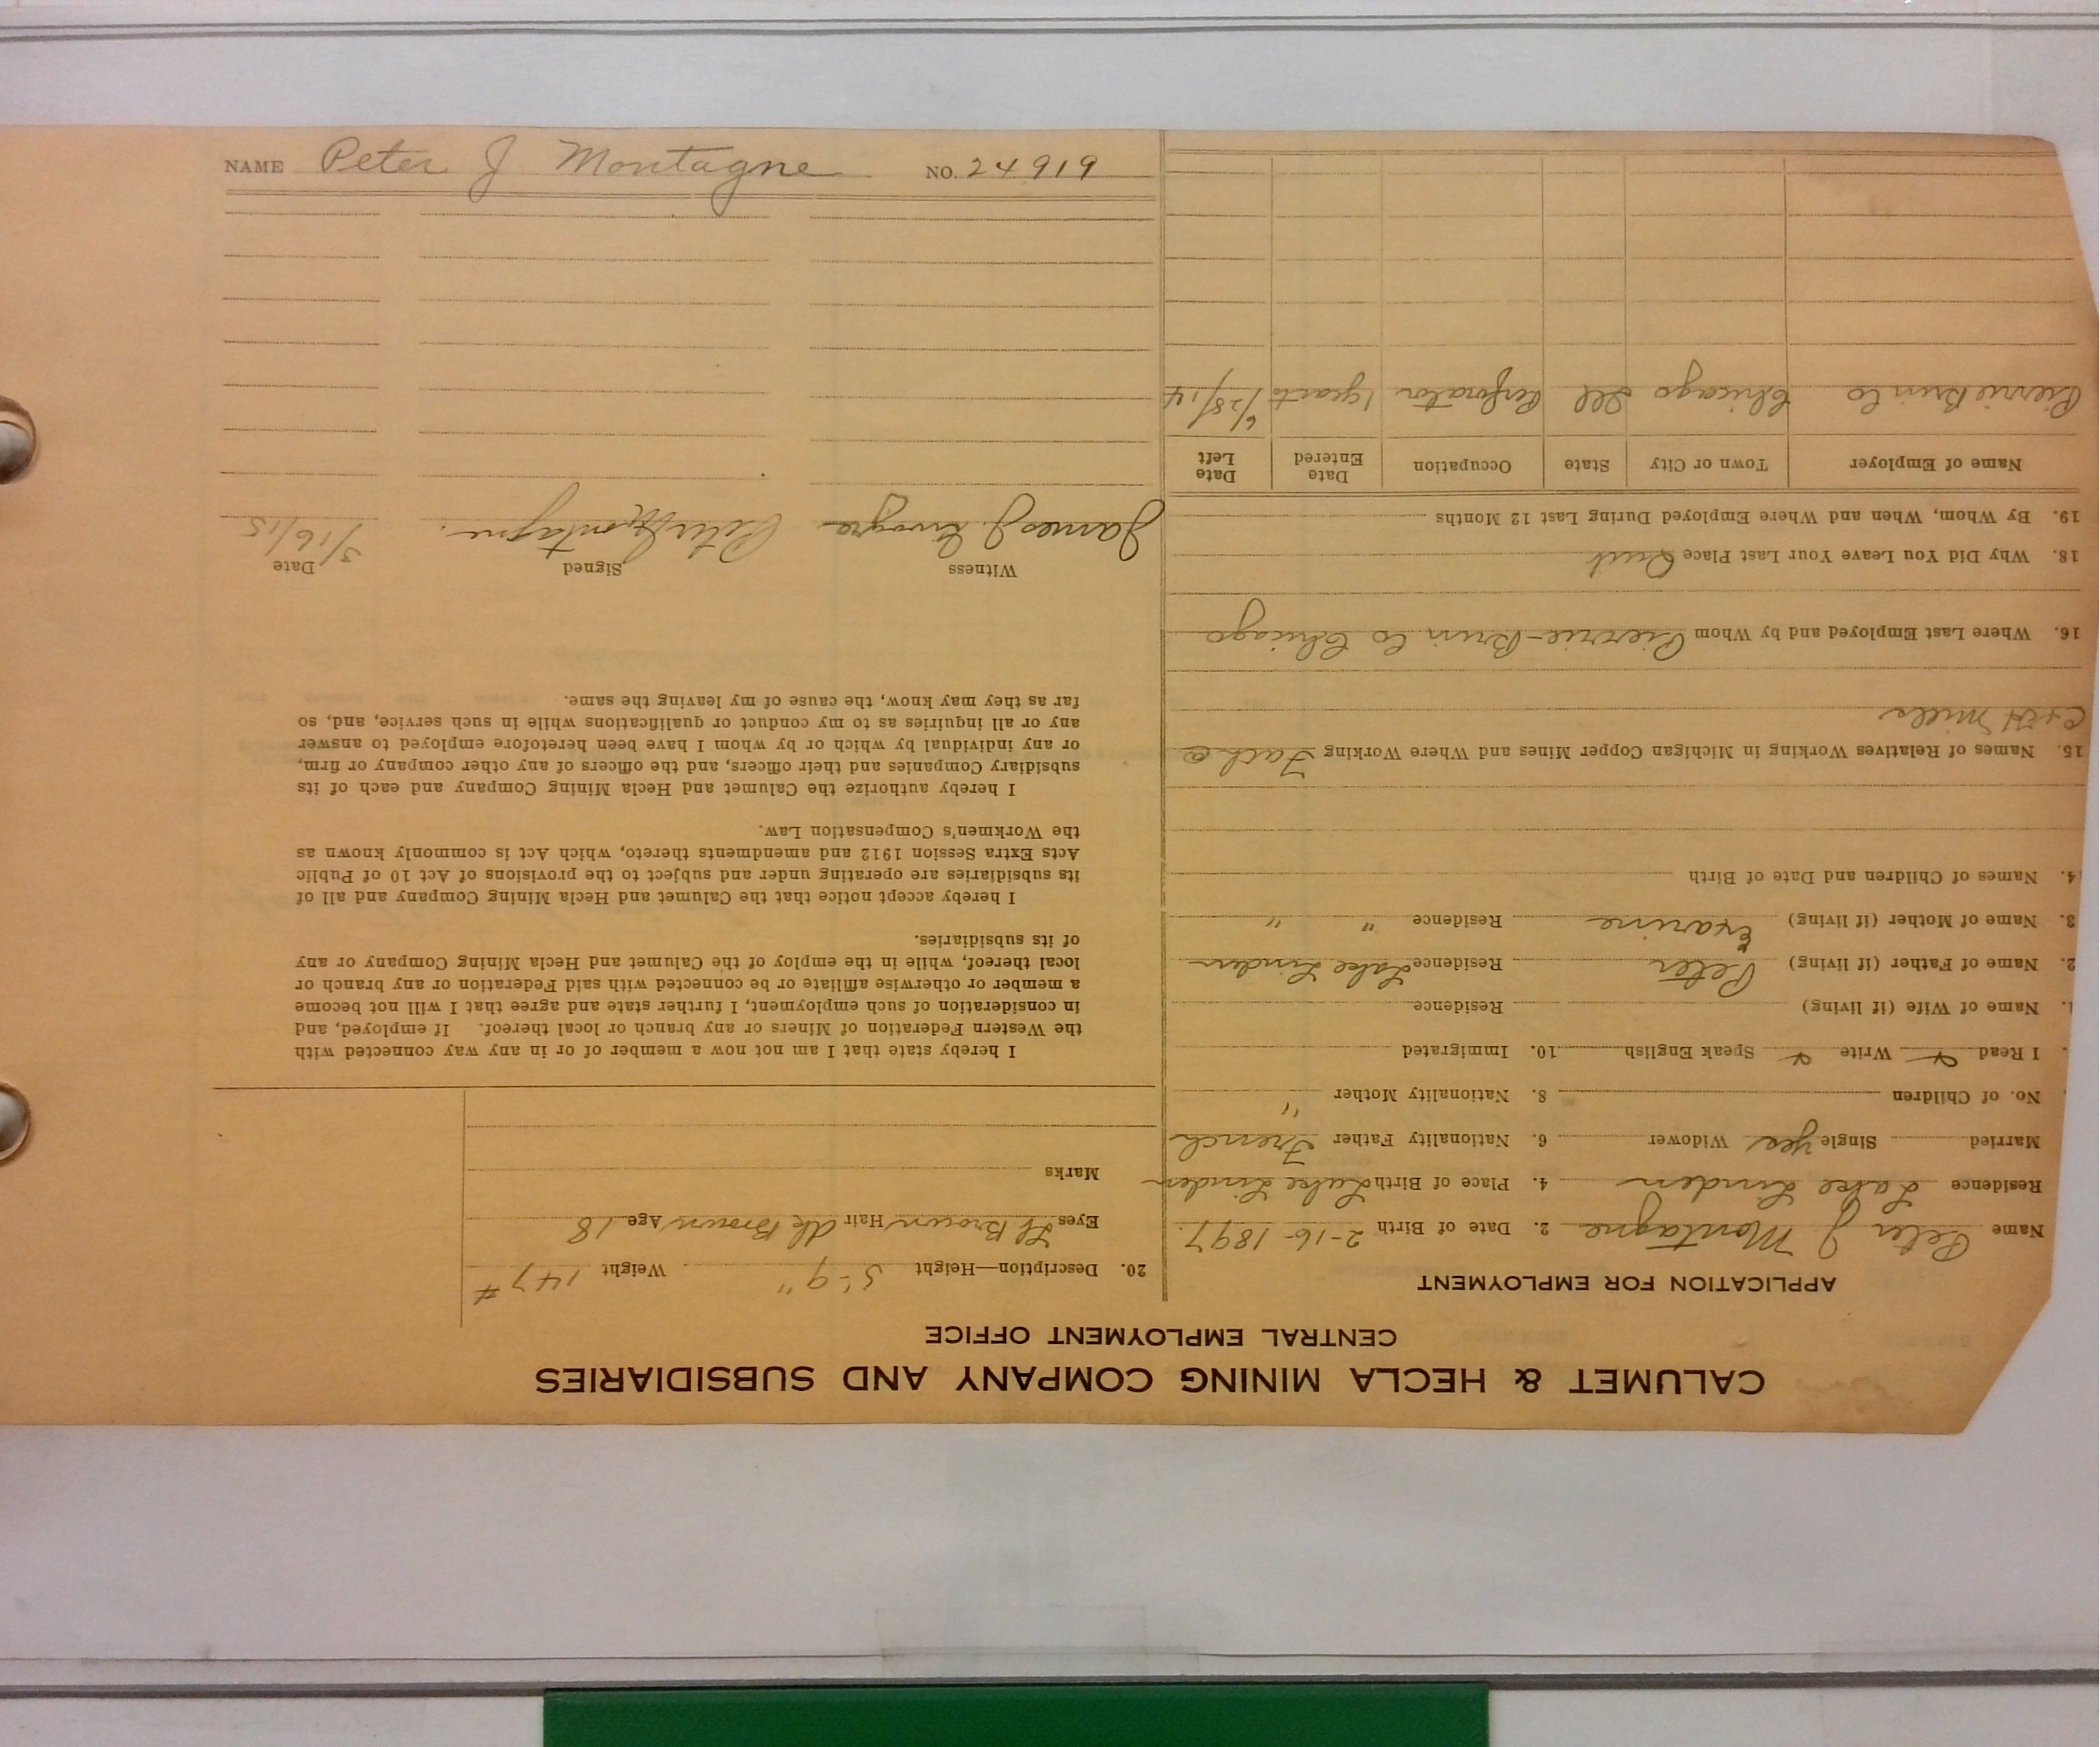 CALUMET & HECLA MINING COMPANY AND SUBSIDIARIES
CENTRAL EMPLOYMENT OFFICE
APPLICATION FOR EMPLOYMENT
Name Peter J Montagne 2. Date of Birth 2-16-1897.
Residence Lake Linden 4. Place of Birth Lake Linden
Married Single yes Widower 6. Nationality Father French
No. of Children 8. Nationality Mother "
I Read Write Speak English 10. Immigrated
1. Name of Wife (if living) Residence
2. Name of Father (if living) Peter Residence Lake Linden
3. Name of Mother (if living) Exarine Residence " "
4. Names of Children and Date of Birth
15. Names of Relatives Working in Michigan Copper Mines and Where Working Father @
C & H Mills
16. Where Last Employed and by Whom Co Chicago
18. Why Did You Leave Your Last Place Quit
19. By Whom, When and Where Employed During Last 12 Months
Name of Employer Town or City State Occupation Date Entered Date Left
Co Chicago Ill Perforator 1 year to 6/28/14
20. Description—Height 5'-9" Weight 147 #
Eyes Lt Brown Hair dk Brown Age 18
Marks
I hereby state that I am not now a member of or in any way connected with
the Western Federation of Miners or any branch or local thereof. If employed, and
in consideration of such employment, I further state and agree that I will not become
a member or otherwise affiliate or be connected with said Federation or any branch or
local thereof, while in the employ of the Calumet and Hecla Mining Company or any
of its subsidiaries.
I hereby accept notice that the Calumet and Hecla Mining Company and all of
its subsidiaries are operating under and subject to the provisions of Act 10 of Public
Acts Extra Session 1912 and amendments thereto, which Act is commonly known as
the Workmen's Compensation Law.
I hereby authorize the Calumet and Hecla Mining Company and each of its
subsidiary Companies and their officers, and the officers of any other company or firm,
or any individual by which or by whom I have been heretofore employed to answer
any or all inquiries as to my conduct or qualifications while in such service, and, so
far as they may know, the cause of my leaving the same.
Witness Signed Date
James J. Peter J Montagne. 3/16/15
NAME Peter J Montagne NO. 24919